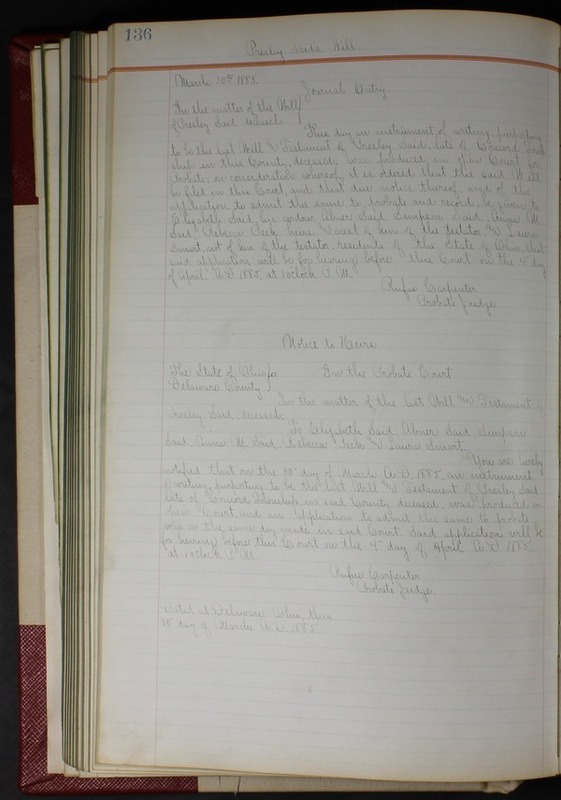 136
Presley Said's Will.
March 30th 1885
Journal Entry.
In the matter of the Will
of Presley Said deceased.
This day an instrument of writing, purporting
to be the last Will and Testament of Presley Said, late of Concord Town
ship in this County, deceased, was produced in open Court for
Probate, on consideration whereof, it is ordered that the said Will
be filed in this Court, and that due notice thereof, and of the
application to admit the same to probate and record, be given to
Elizabeth Said, his widow Abner Said Simpson Said Anna M.
Said Rebecca Peck heirs & next of kin of the testator and Laura
Smart, not of kin of the testator residents of the State of Ohio that
said application will be for hearing before this Court on the 4th day
of April A.D. 1885, at 1 o'clock P.M.
Rufus Carpenter
Probate Judge.
Notice to Heirs
The State of Ohio ss
Delaware County
In the Probate Court
In the matter of the last Will and Testament of
Presley Said, deceased.
To Elizabeth Said, Abner Said Simpson
Said, Anna M. Said Rebecca Peck and Laura Smart.
You are hereby
notified that on the 30th day of March A.D. 1885 an instrument
of writing, purporting to be the last Will and Testament of Presley Said
late of Concord Township in said County deceased, was produced in
open Court and an application to admit the same to probate
was on the same day made in said Court. Said application will be
for hearing before this Court on the 4th day of April A.D. 1885
at 1 o'clock P.M.
Rufus Carpenter
Probate Judge.
Dated at Delaware Ohio, this
30th day of March A.D. 1885